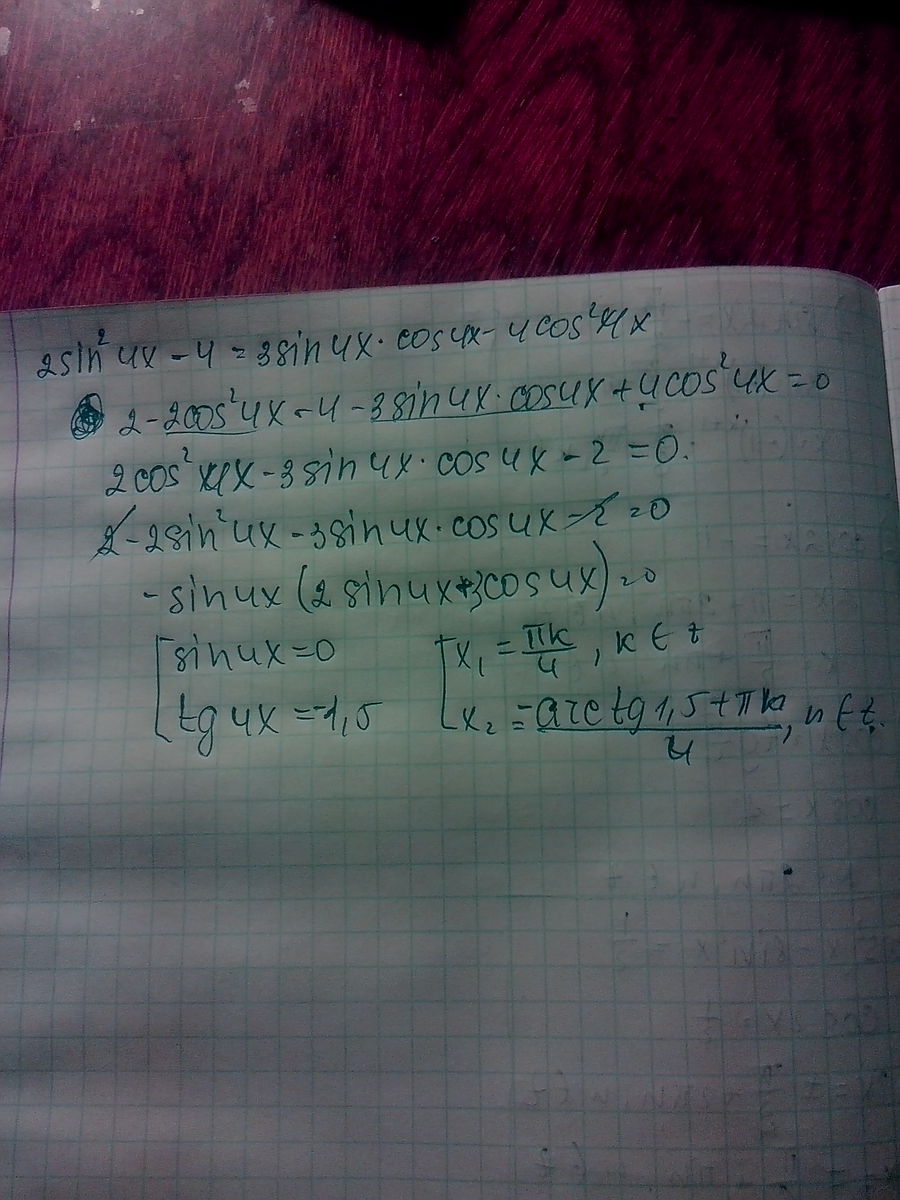 2sin² 4x - 4 = 3sin 4x · cos 4x - 4cos² 4x
2 - 2cos² 4x - 4 - 3sin 4x · cos 4x + 4cos² 4x = 0
2cos² 4x - 3sin 4x · cos 4x - 2 = 0.
2 - 2sin² 4x - 3sin 4x · cos 4x - 2 = 0
- sin 4x (2 sin 4x + 3cos 4x) = 0
[ sin 4x = 0 [ x₁ = πk/4, k ∈ z
[ tg 4x = -1,5 [ x₂ = (-arctg 1,5 + πn)/4, n ∈ z.